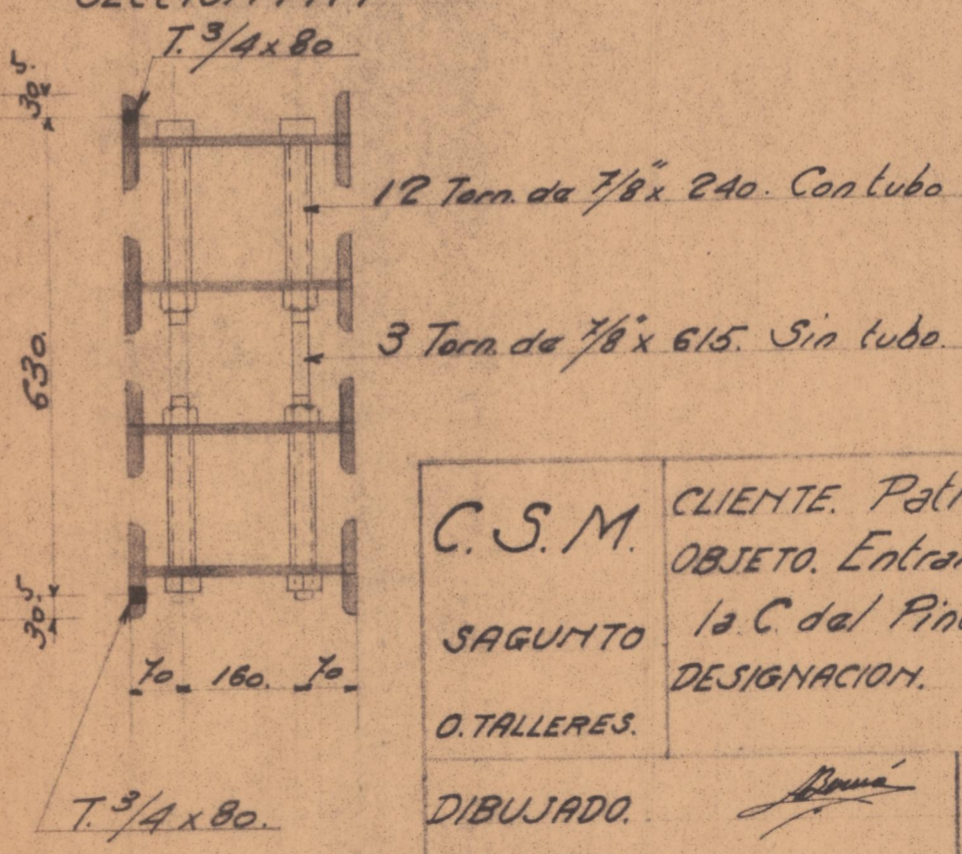 T. 3/4 x 80
30,5
12 Torn. de 7/8" x 240. Con tubo
3 Torn. de 7/8" x 615. Sin tubo.
630.
30,5
70 160. 70
T. 3/4 x 80.
C. S. M.
SAGUNTO
O. TALLERES.
CLIENTE.
OBJETO.
la C. del
DESIGNACION.
DIBUJADO.